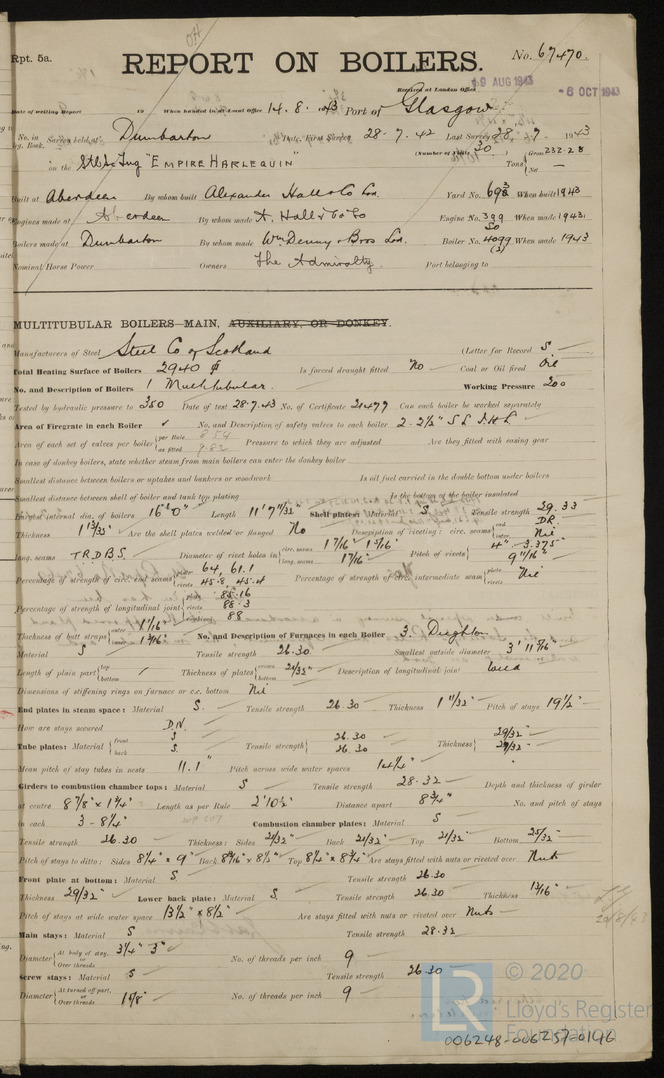 Rpt. 5a.
REPORT ON BOILERS.
No. 67470.
Received at London Office 19 AUG 1943
-6 OCT 1943
Date of writing Report 19 When handed in at Local Office 14.8.1943 Port of Glasgow
No. in Reg. Book. Survey held at Dumbarton Date, First Survey 28.7.42 Last Survey 28.7.1943
(Number of Visits 30)
on the "EMPIRE HARLEQUIN" Tons Gross 232.28 Net —
Built at Aberdeen By whom built Alexander Hall & Co Ltd. Yard No. When built 1943
Engines made at Aberdeen By whom made A. Hall & Co Engine No. 399 When made 1943
Boilers made at Dumbarton By whom made Wm Denny & Bros Ltd. Boiler No. 4099 (3) When made 1943
Nominal Horse Power Owners The Admiralty. Port belonging to
MULTITUBULAR BOILERS—MAIN, AUXILIARY, OR DONKEY.
Manufacturers of Steel Steel Co of Scotland (Letter for Record S
Total Heating Surface of Boilers 2940 Is forced draught fitted No Coal or Oil fired Oil
No. and Description of Boilers 1 Multitubular. Working Pressure 200
Tested by hydraulic pressure to 350 Date of test 28.7.43 No. of Certificate 21477 Can each boiler be worked separately
Area of Firegrate in each Boiler ✓ No. and Description of safety valves to each boiler 2 - 2½" S.L. I.H.L.
Area of each set of valves per boiler per Rule 8.54 as fitted 9.82 Pressure to which they are adjusted Are they fitted with easing gear
In case of donkey boilers, state whether steam from main boilers can enter the donkey boiler
Smallest distance between boilers or uptakes and bunkers or woodwork Is oil fuel carried in the double bottom under boilers
Smallest distance between shell of boiler and tank top plating Is the bottom of the boiler insulated
Largest internal dia. of boilers Length 11' 7 11/32" Shell plates: Material S Tensile strength 29.33
Thickness 1 13/32" Are the shell plates welded or flanged No Description of riveting: circ. seams end D.R. inter. Nil
long. seams T.R.D.B.S. Diameter of rivet holes in circ. seams 1 7/16" 1 5/16" long. seams 1 7/16" Pitch of rivets 4" - 3.375" 9 11/16"
Percentage of strength of circ. end seams plate 64, 61.1 rivets 45.8, 45.4 Percentage of strength of circ. intermediate seam plate rivets Nil
Percentage of strength of longitudinal joint plate 85.16 rivets 88.3 combined 88
Thickness of butt straps outer 1 1/16" inner 1 3/16" No. and Description of Furnaces in each Boiler 3. Deighton
Material S Tensile strength 26.30 Smallest outside diameter 3' 11 5/16"
Length of plain part top bottom ✓ Thickness of plates crown bottom 21/32" Description of longitudinal joint Weld
Dimensions of stiffening rings on furnace or c.c. bottom Nil
End plates in steam space: Material S. Tensile strength 26.30 Thickness 1 11/32" Pitch of stays 19½"
How are stays secured D.N.
Tube plates: Material front S back S. Tensile strength 26.30 26.30 Thickness 29/32" 29/32"
Mean pitch of stay tubes in nests 11.1" Pitch across wide water spaces 14¼"
Girders to combustion chamber tops: Material S Tensile strength 28.32 Depth and thickness of girder
at centre 8 7/8" x 1¾" Length as per Rule 2' 10½" Distance apart 8¾" No. and pitch of stays
in each 3 - 8¼" Combustion chamber plates: Material S
Tensile strength 26.30 Thickness: Sides 21/32" Back 21/32" Top 21/32" Bottom 25/32"
Pitch of stays to ditto: Sides 8¼" x 9" Back Top 8¼" x 8¾" Are stays fitted with nuts or riveted over Nuts
Front plate at bottom: Material S Tensile strength 26.30
Thickness 29/32" Lower back plate: Material S. Tensile strength 26.30 Thickness 13/16"
Pitch of stays at wide water space 13½" x 8½" Are stays fitted with nuts or riveted over Nuts
Main stays: Material S Tensile strength 28.32
Diameter At body of stay, or Over threads 3¼" 3" No. of threads per inch 9
Screw stays: Material S Tensile strength 26.30
Diameter At turned off part, or Over threads 1 5/8" No. of threads per inch 9
20/8/43
LR © 2020
Lloyd's Register
Foundation
006248-006257-0146